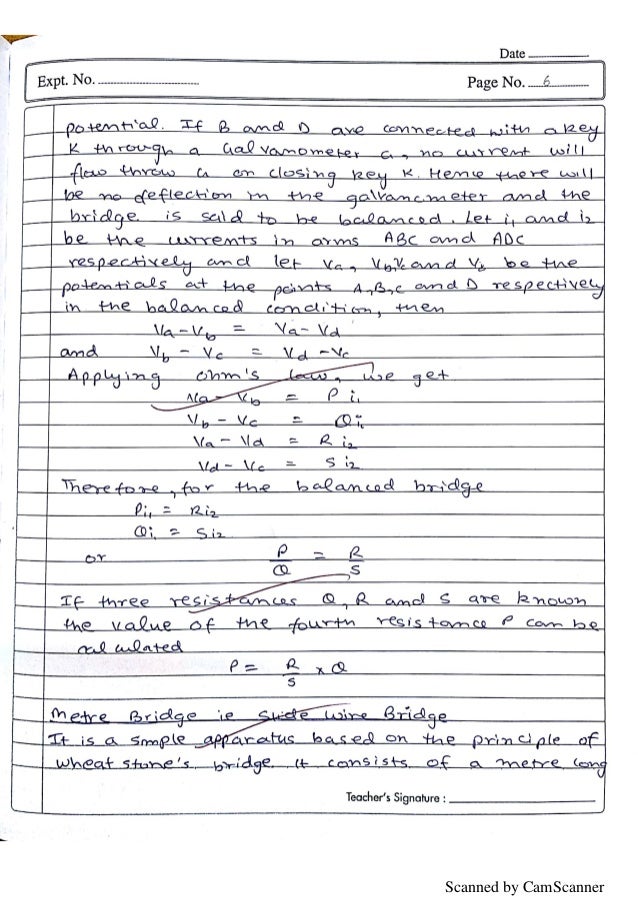 Date
Expt. No.
Page No. 6
potential. If B and D are connected with a key
K through a Galvanometer G, no current will
flow throw G on closing key K. Hence there will
be no deflection in the galvanometer and the
bridge is said to be balanced. Let i₁ and i₂
be the currents in arms ABC and ADC
respectively and let Va, Vb, Vc and Vd be the
potentials at the points A, B, C and D respectively
in the balanced condition, then
Va - Vb = Va - Vd
and Vb - Vc = Vd - Vc
Applying ohm's law, we get
Va - Vb = P i₁
Vb - Vc = Q i₁
Va - Vd = R i₂
Vd - Vc = S i₂
Therefore, for the balanced bridge
Pi₁ = Ri₂
Qi₁ = Si₂
or P/Q = R/S
If three resistances Q, R and S are known
the value of the fourth resistance P can be
calculated
P = R/S x Q
Metre Bridge ie Slide wire Bridge
It is a smple apparatus based on the principle of
wheat stone's bridge. It consists of a metre long
Teacher's Signature :
Scanned by CamScanner